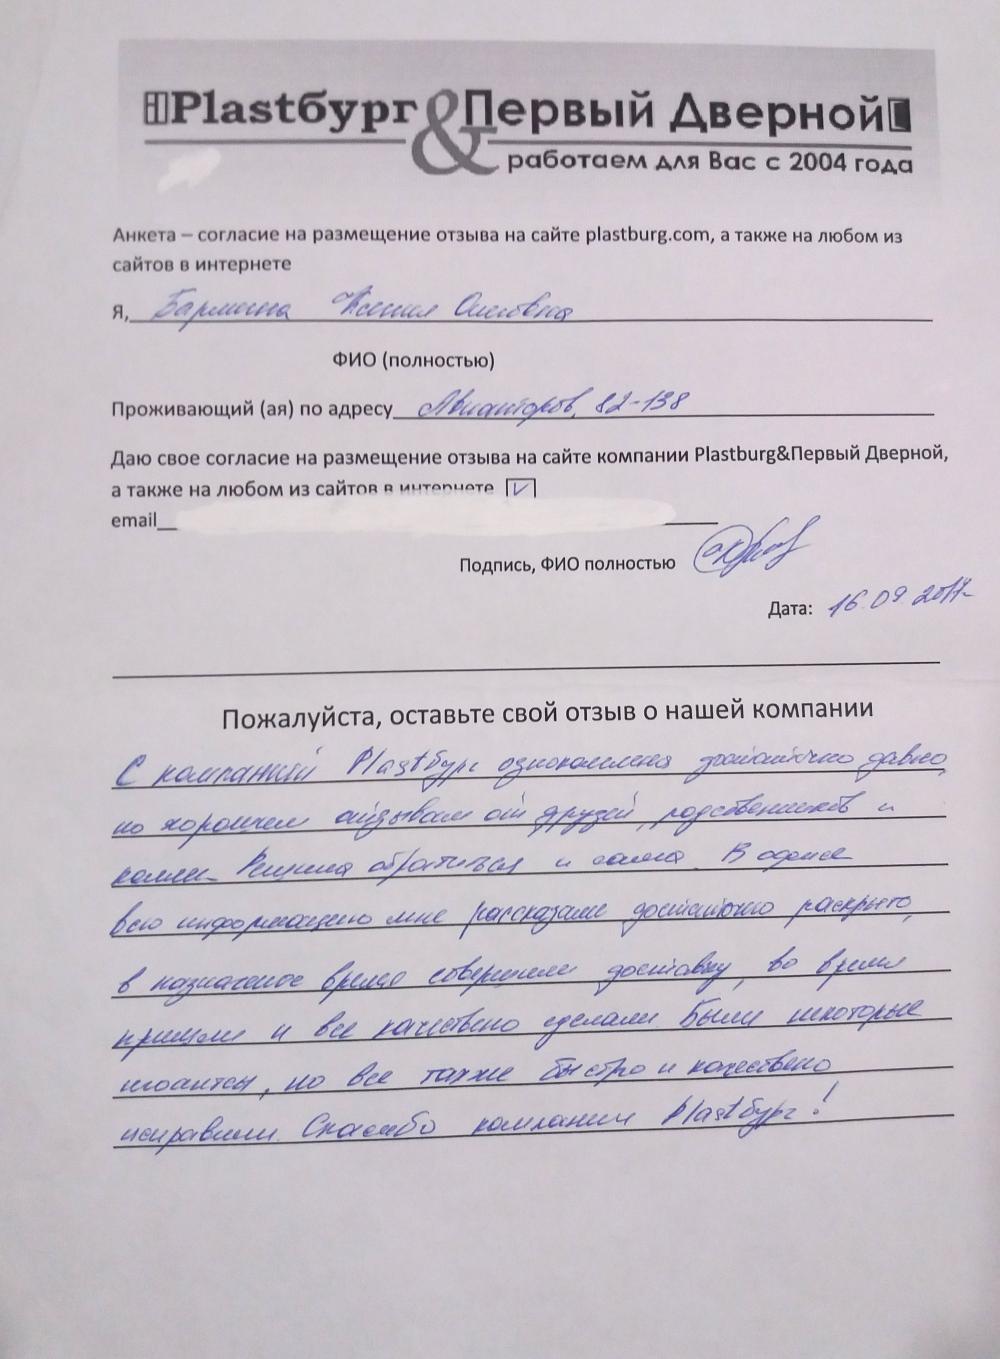 Plastбург & Первый Дверной
работаем для Вас с 2004 года
Анкета – согласие на размещение отзыва на сайте plastburg.com, а также на любом из
сайтов в интернете
Я, Бармина Ксения Олеговна
ФИО (полностью)
Проживающий (ая) по адресу Авиаторов, 82-138
Даю свое согласие на размещение отзыва на сайте компании Plastburg&Первый Дверной,
а также на любом из сайтов в интернете
email
Подпись, ФИО полностью
Дата: 16.09.2017
Пожалуйста, оставьте свой отзыв о нашей компании
С компанией Plastбург ознакомлена достаточно давно,
по хорошем отзывам от друзей, родственников и
коллег. Решила обратиться и сама. В офисе
всю информацию мне рассказали достаточно раскрыто,
в назначеное время совершили доставку, во время
пришли и все качествено сделали. Были некоторые
нюансы, но все также быстро и качествено
исправили. Спасибо компании Plastбург!